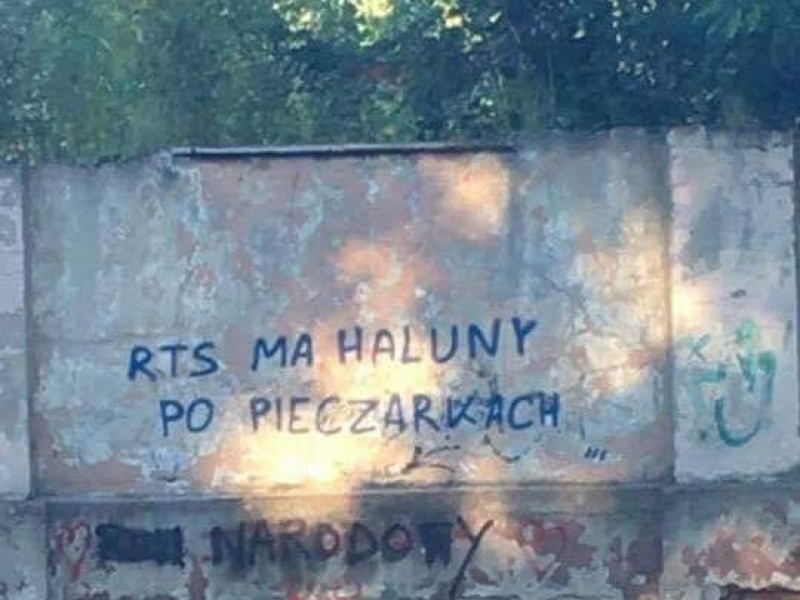 RTS MA HALUNY
PO PIECZARKACH
NARODOWY